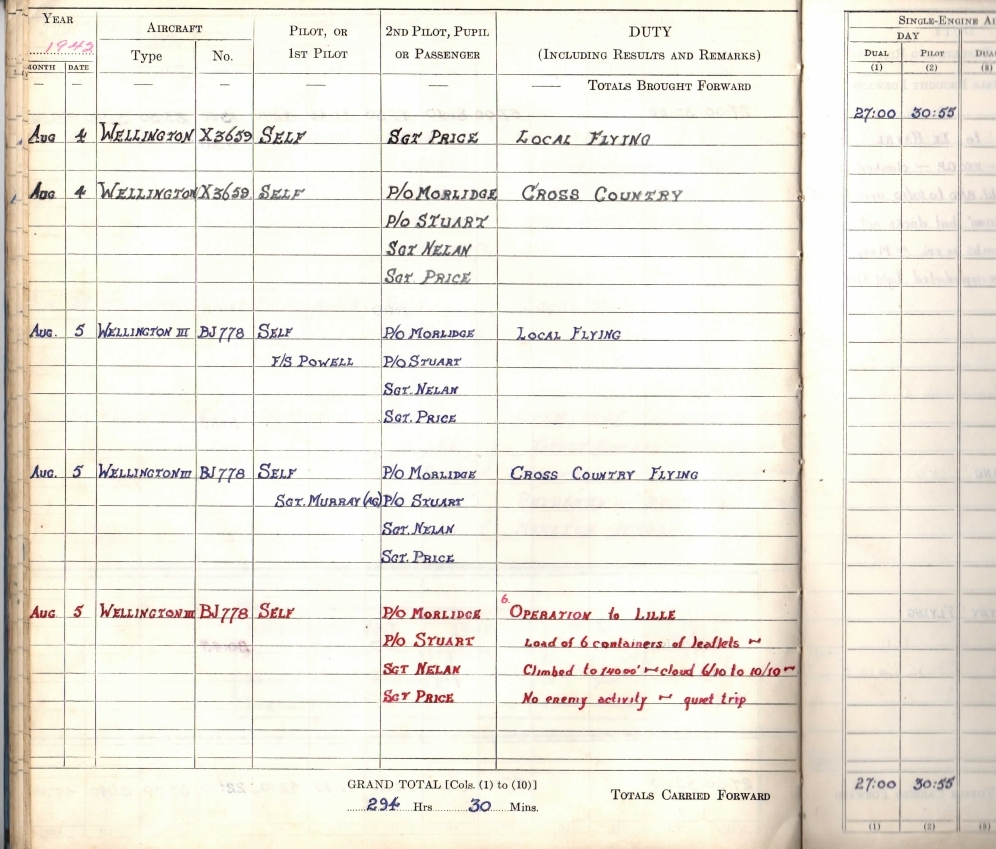 YEAR AIRCRAFT PILOT, OR 2ND PILOT, PUPIL DUTY SINGLE-ENGINE
1942 Type No. 1ST PILOT OR PASSENGER (INCLUDING RESULTS AND REMARKS) DAY
MONTH DATE DUAL PILOT
(1) (2) (3)
— — — — — — — TOTALS BROUGHT FORWARD
27:00 30:55
AUG 4 WELLINGTON X3659 SELF SGT PRICE LOCAL FLYING
AUG 4 WELLINGTON X3659 SELF P/O MORLIDGE CROSS COUNTRY
P/O STUART
SGT NELAN
SGT. PRICE
AUG. 5 WELLINGTON III BJ778 SELF P/O MORLIDGE LOCAL FLYING
F/S POWELL P/O STUART
SGT. NELAN
SGT. PRICE
AUG. 5 WELLINGTON III BJ778 SELF P/O MORLIDGE CROSS COUNTRY FLYING
SGT. MURRAY (AG) P/O STUART
SGT. NELAN
SGT. PRICE
AUG 5 WELLINGTON III BJ778 SELF P/O MORLIDGE 6. OPERATION to LILLE
P/O STUART Load of 6 containers of leaflets ~
SGT NELAN Climbed to 14000' ~ cloud 6/10 to 10/10 ~
SGT PRICE No enemy activity ~ quiet trip
GRAND TOTAL [Cols. (1) to (10)]
294 Hrs 30 Mins. TOTALS CARRIED FORWARD 27:00 30:55
(1) (2) (3)